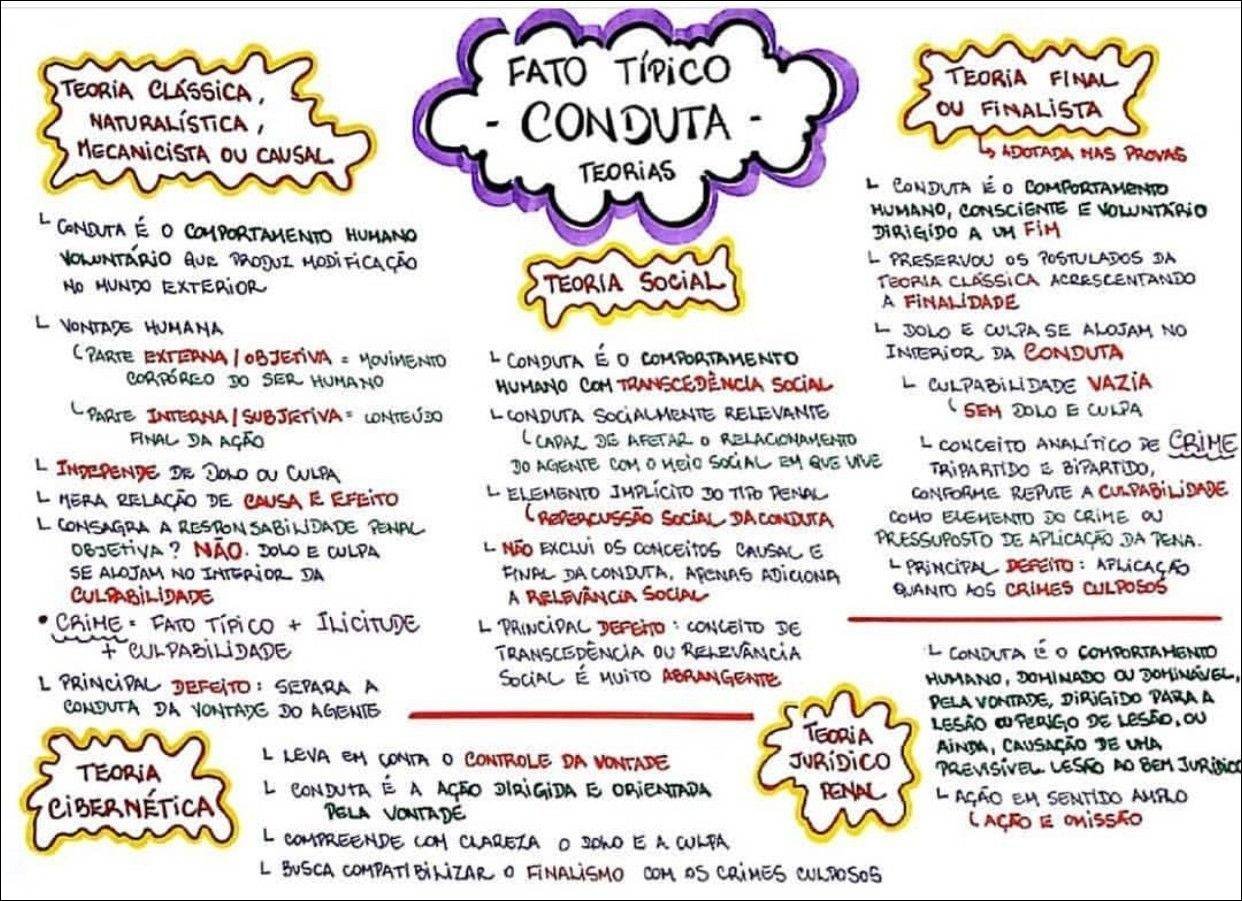 FATO TÍPICO
- CONDUTA -
TEORIAS
TEORIA CLÁSSICA,
NATURALÍSTICA,
MECANICISTA OU CAUSAL
└ CONDUTA É O COMPORTAMENTO HUMANO
VOLUNTÁRIO QUE PRODUZ MODIFICAÇÃO
NO MUNDO EXTERIOR
└ VONTADE HUMANA
└ PARTE EXTERNA / OBJETIVA = MOVIMENTO
CORPÓREO DO SER HUMANO
└ PARTE INTERNA / SUBJETIVA = CONTEÚDO
FINAL DA AÇÃO
└ INDEPENDE DE DOLO OU CULPA
└ MERA RELAÇÃO DE CAUSA E EFEITO
└ CONSAGRA A RESPONSABILIDADE PENAL
OBJETIVA? NÃO. DOLO E CULPA
SE ALOJAM NO INTERIOR DA
CULPABILIDADE
• CRIME = FATO TÍPICO + ILICITUDE
+ CULPABILIDADE
└ PRINCIPAL DEFEITO: SEPARA A
CONDUTA DA VONTADE DO AGENTE
TEORIA SOCIAL
└ CONDUTA É O COMPORTAMENTO
HUMANO COM TRANSCEDÊNCIA SOCIAL
└ CONDUTA SOCIALMENTE RELEVANTE
└ CAPAZ DE AFETAR O RELACIONAMENTO
DO AGENTE COM O MEIO SOCIAL EM QUE VIVE
└ ELEMENTO IMPLÍCITO DO TIPO PENAL
└ REPERCUSSÃO SOCIAL DA CONDUTA
└ NÃO EXCLUI OS CONCEITOS CAUSAL E
FINAL DA CONDUTA, APENAS ADICIONA
A RELEVÂNCIA SOCIAL
└ PRINCIPAL DEFEITO: CONCEITO DE
TRANSCEDÊNCIA OU RELEVÂNCIA
SOCIAL É MUITO ABRANGENTE
TEORIA FINAL
OU FINALISTA
↳ ADOTADA NAS PROVAS
└ CONDUTA É O COMPORTAMENTO
HUMANO, CONSCIENTE E VOLUNTÁRIO
DIRIGIDO A UM FIM
└ PRESERVOU OS POSTULADOS DA
TEORIA CLÁSSICA ACRESCENTANDO
A FINALIDADE
└ DOLO E CULPA SE ALOJAM NO
INTERIOR DA CONDUTA
└ CULPABILIDADE VAZIA
└ SEM DOLO E CULPA
└ CONCEITO ANALÍTICO DE CRIME
TRIPARTIDO E BIPARTIDO,
CONFORME REPUTE A CULPABILIDADE
COMO ELEMENTO DO CRIME OU
PRESSUPOSTO DE APLICAÇÃO DA PENA.
└ PRINCIPAL DEFEITO: APLICAÇÃO
QUANTO AOS CRIMES CULPOSOS
TEORIA
CIBERNÉTICA
└ LEVA EM CONTA O CONTROLE DA VONTADE
└ CONDUTA É A AÇÃO DIRIGIDA E ORIENTADA
PELA VONTADE
└ COMPREENDE COM CLAREZA O DOLO E A CULPA
└ BUSCA COMPATIBILIZAR O FINALISMO COM OS CRIMES CULPOSOS
TEORIA
JURÍDICO
PENAL
└ CONDUTA É O COMPORTAMENTO
HUMANO, DOMINADO OU DOMINÁVEL,
PELA VONTADE, DIRIGIDO PARA A
LESÃO OU PERIGO DE LESÃO, OU
AINDA, CAUSAÇÃO DE UMA
PREVISÍVEL LESÃO AO BEM JURÍDICO
└ AÇÃO EM SENTIDO AMPLO
└ AÇÃO E OMISSÃO